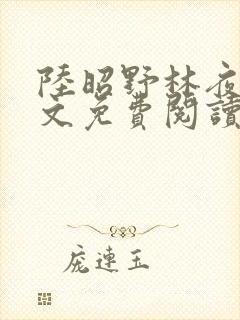 陸昭野林夜
文免費閱讀
龐連玉